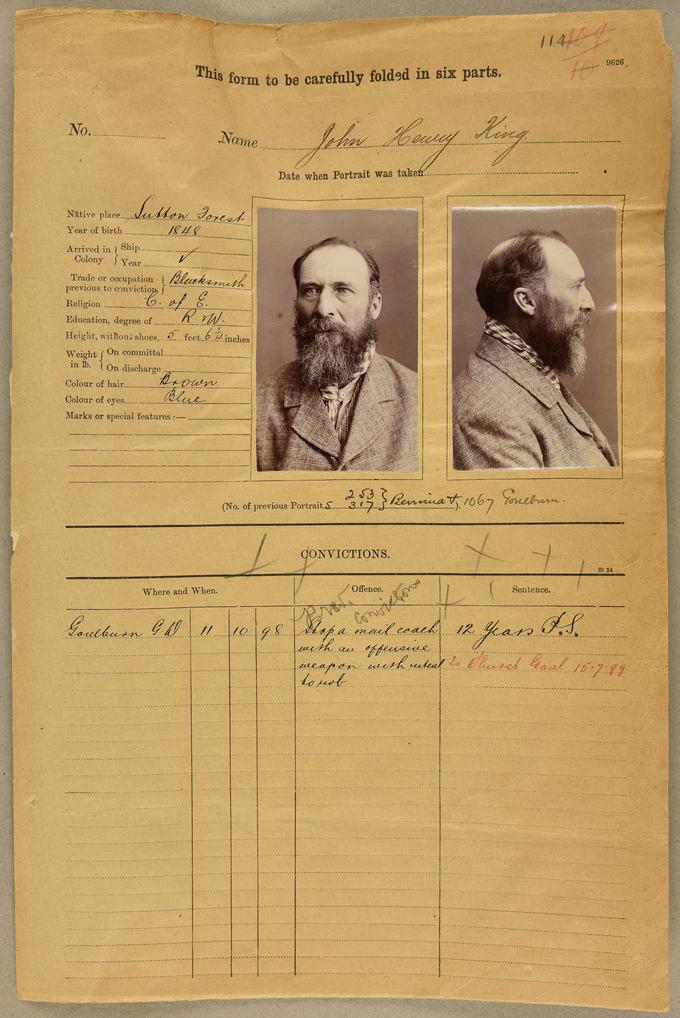 114 109
10
9626
This form to be carefully folded in six parts.
No.
Name John Henry King
Date when Portrait was taken
Native place Sutton Forest
Year of birth 1848
Arrived in Colony } Ship
Year ✓
Trade or occupation previous to conviction } Blacksmith
Religion C. of E.
Education, degree of R & W.
Height, without shoes, 5 feet 6 1/4 inches
Weight in lb. { On committal
On discharge
Colour of hair Brown
Colour of eyes Blue
Marks or special features :—
(No. of previous Portraits 253 } Berrima
317 }
1067 Goulburn.
CONVICTIONS.
St 34
Where and When. Offence. Sentence.
Prev. Convictions
Goulburn G D 11 10 98 Stop a mail coach 12 Years P.S.
with an offensive
weapon with intent to D'hurst Gaol 15.7.99
to rob